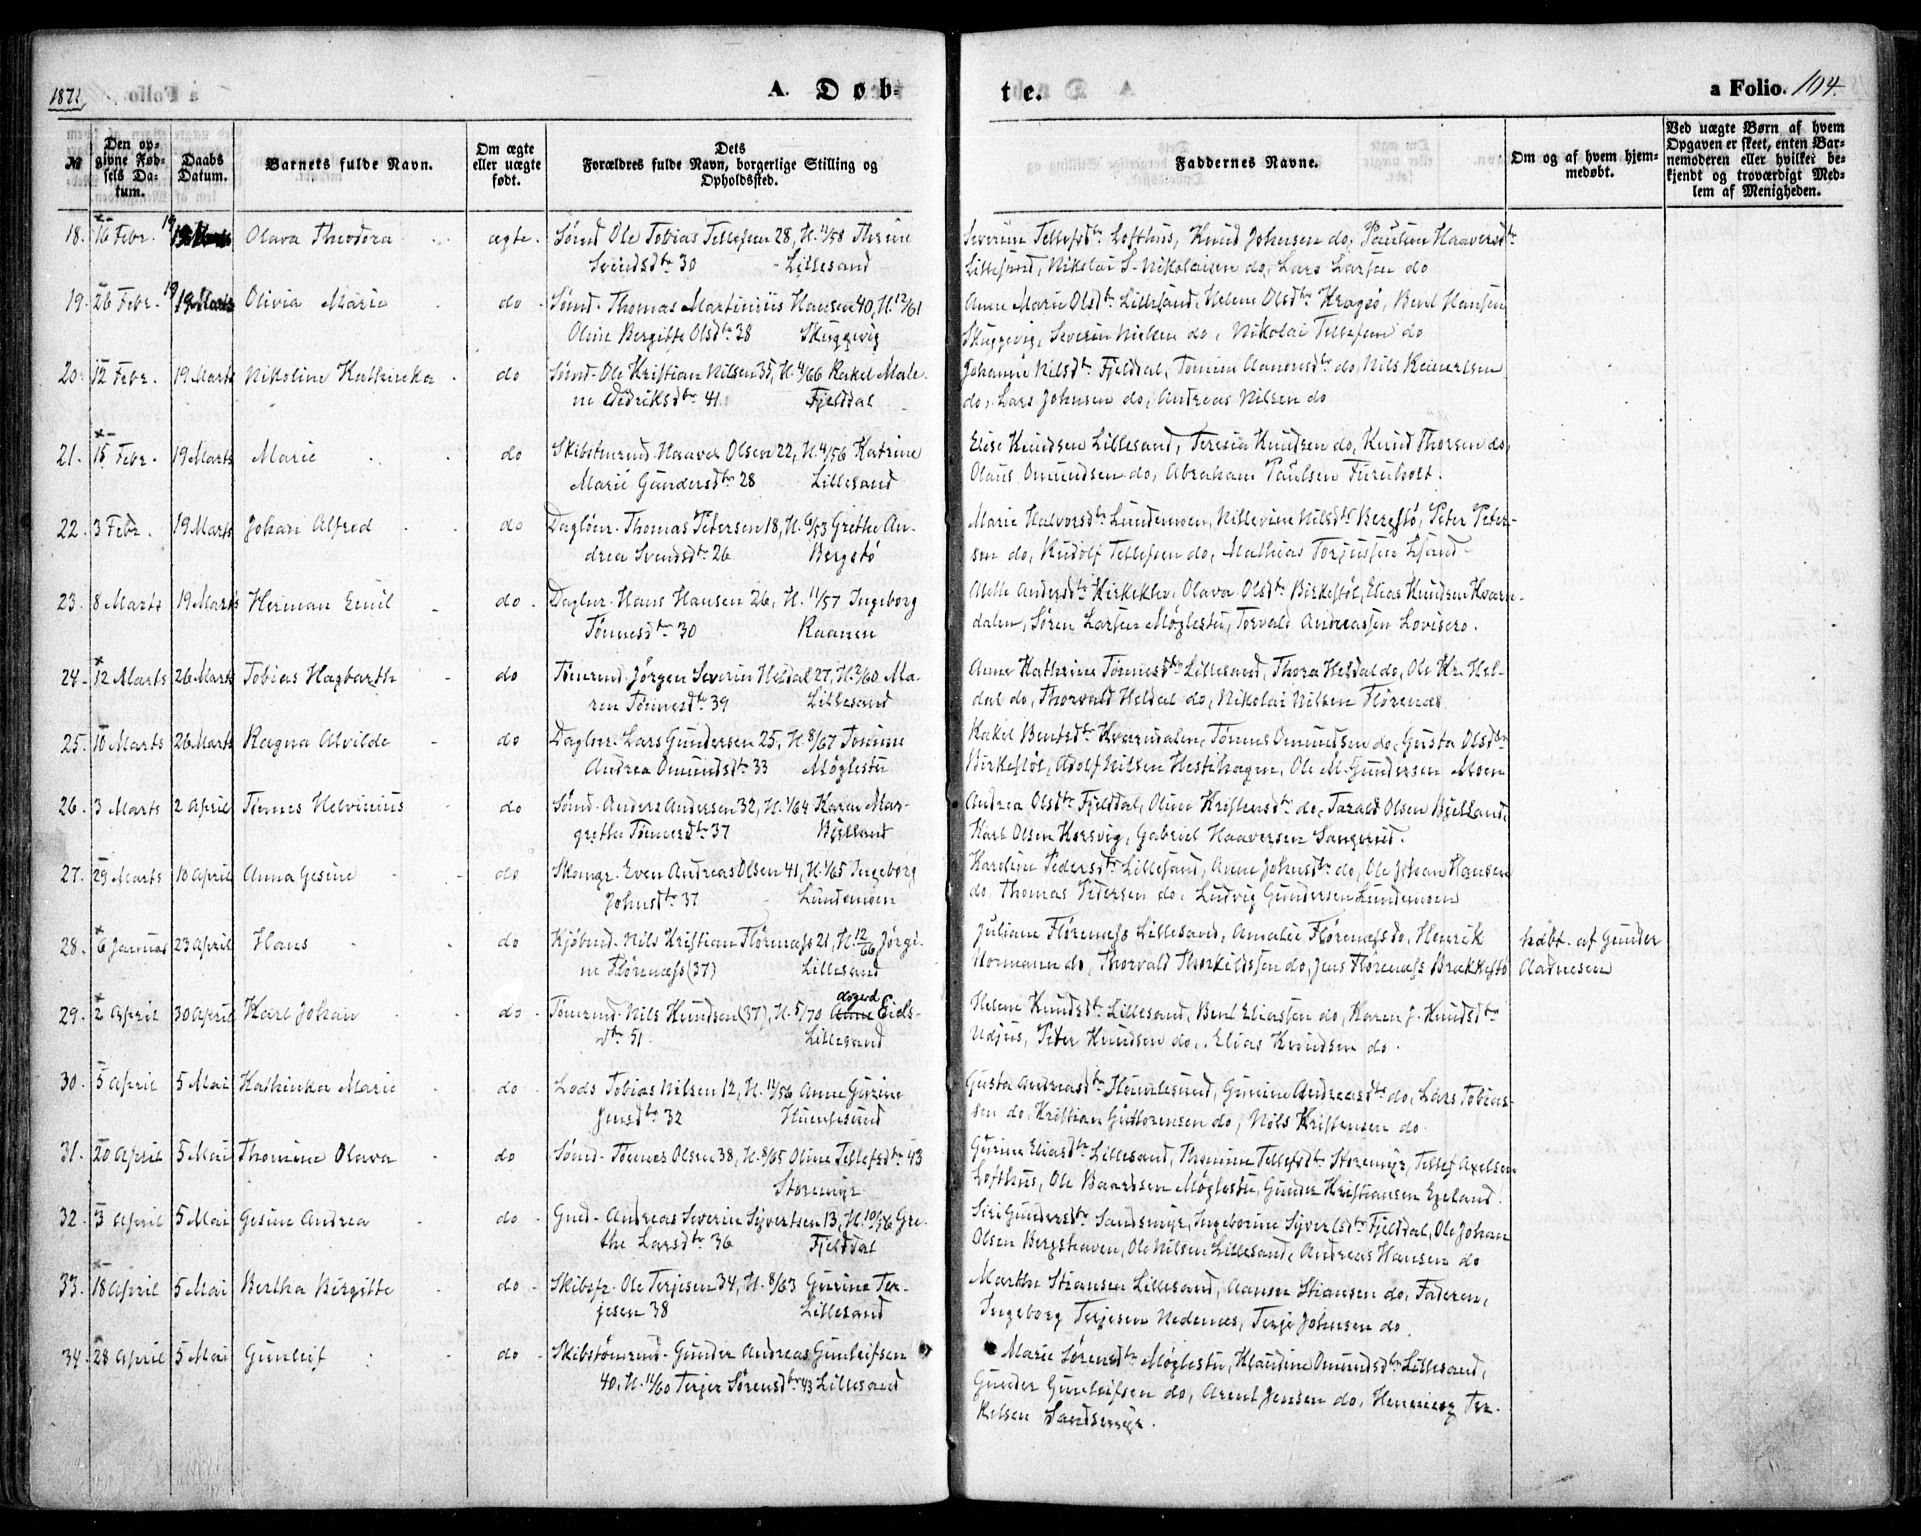 1872
A. Døb-
te.
a Folio. 104.
№
Den op-
givne Føds-
sels Da-
tum.
Daabs
Datum.
Barnets fulde Navn.
Om ægte
eller uægte
født.
Dets
Forældres fulde Navn, borgerlige Stilling og
Opholdssted.
Faddernes Navne.
Om og af hvem hjem-
medøbt.
Ved uægte Børn af hvem
Opgaven er skeet, enten Bar-
nemoderen eller hvilket be-
kjendt og troværdigt Med-
lem af Menigheden.
18. 16 Febr. 19 Olava Theodora ægte. Sømd Ole Tobias Tellefsen 28, H. 11/58 Thrine
Svendsdtr 30 - Lillesand
Severine Tellefsdtr Lofthus, Knud Johnsen do, Paulsen Haaversdtr
Lillesand, Nikolai S. Nikolaisen do, Lars Larsen do
19. 26 Febr. 19 Marts Olivia Marie do Sømd. Thomas Martinius Hansen 40, H. 12/61
Oline Bergitte Olsdtr 38 Skuggevig
Anne Marie Olsdtr Lillesand, Helene Olsdtr Kragsø, Bent Hansen
Skuggevig, Severin Nielsen do, Nikolai Tellefsen do
20. 12 Febr. 19 Marts Nikoline Kathinka do Sømd. Ole Kristian Nilsen 35, H. 4/66 Rakel Male-
ne Didriksdtr 41 Fjelldal
Johanne Nilsdtr Fjelldal, Tomine Aanonsdtr do, Nils Reinertsen
do, Lars Johnsen do, Andreas Nilsen do
21. 15 Febr. 19 Marts Marie do Skibstømrmd Haaver Olsen 22, H. 4/56 Katrine
Marie Gundersdtr 28 Lillesand
Elise Knudsen Lillesand, Teresia Knudsen do, Knud Thorsen do,
Olaus Omundsen do, Abraham Paulsen Furuholt.
22. 3 Febr. 19 Marts Johan Alfred do Dagløn. Thomas Petersen 18, H. 6/53 Grethe An-
drea Svendsdtr 26 Bergstø
Marie Halvorsdtr Lundemoen, Nillevine Nilsdtr Bergstø, Peter Peter-
sen do, Rudolf Tellefsen do, Mathias Torjussen
23. 8 Marts 19 Marts Herman Emil do. Daglnr. Hans Hansen 26, H. 11/57 Ingeborg
Tønnesdtr 30 Raanen
Andersdtr Kirkeklev, Olava Olsdtr Birkestøl, Elias Knudsen Kvarn-
dalen, Søren Larsen Møglestu, Torvald Andreassen Lovisero.
24. 12 Marts 26 Marts Tobias Hagbarth do Tømrmd. Jørgen Severin Heldal 27, H. 2/60 Ma-
ren Tønnesdtr 39 Lillesand
Anne Kathrine Tønnesdtr Lillesand, Thora Heldal do, Ole Kr. Hel-
dal do, Thorvald Heldal do, Nikolai Nilsen Florenæs
25. 10 Marts 26 Marts Ragna Alvilde do Daglnr. Lars Gundersen 25, H. 8/67 Tomine
Andrea Omundsdtr 33 Møglestu
Rakel Bentsdtr Kvarndalen, Tønnes Omundsen do, Gusta Olsdtr
Birkestøl, Adolf Nilsen Hestehagen, Ole M. Gundersen Moen
26. 3 Marts 2 April Tønnes Helvinius do Sømd. Anders Andersen 32, H. 1/64 Karen Mar-
grethe Tønnesdtr 37 Bjelland
Andrea Olsdtr Fjelldal, Oline Kristensdtr do, Tarald Olsen Bjelland,
Karl Olsen Korsvig, Gabriel Haaversen Sangereid.
27. 29 Marts 10 April Anna Gesine do Skomgr. Even Andreas Olsen 41, H. 1/65 Ingeborg
Johnsdtr 37 Lundemoen
Karoline Pedersdtr Lillesand, Anne Johnsdtr do, Ole Johan Hansen
do, Thomas Pedersen do, Ludvig Gundersen Lundemoen
28. 6 Januar 23 April Hans do Kjøbmd. Nils Kristian Florenæss 21, H. 12/66 Jørgi-
ne Florenæss (37) Lillesand
Juliane Florenæss Lillesand, Amalie Florenæss do, Henrik
Normann do, Thorvald Thorkildssen do, Jens Florenæss Brækkestø
hdbt. af Gunder
Aadnesen
29. 2 April 30 April Karl Johan do Tømrmd. Nils Knudsen (37), H. 5/70 Aasgerd Anne Eiels-
dtr 51 Lillesand
Helene Knudsdtr Lillesand, Bent Eliassen do, Karen J. Knudsdtr
Udjus, Peter Knudsen do, Elias Knudsen do
30. 5 April 5 Mai Kathinka Marie do Lods Tobias Nilsen 12, H. 12/56 Anne Gurine
Jensdtr 32 Humlesund
Gusta Andreasdtr Humlesund, Gunine Andreasdtr do, Lars Tobias-
sen do, Kristian Guttormsen do, Nils Kristensen do
31. 20 April 5 Mai Thomine Olava do Sømd. Tønnes Olsen 38, H. 8/65 Oline Tellefsdtr 43
Storemyr
Gurine Eliasdtr Lillesand, Thomine Tellefsdtr Storemyr, Tellef Axelsen
Lofthus, Ole Baardsen Møglestu, Gunder Kristiansen Egeland.
32. 3 April 5 Mai Gesine Andrea do Gmd. Andreas Severin Syvertsen 13, H. 10/56 Gre-
the Larsdtr 36 Fjelldal
Siri Gundersdtr Sandsmyr, Ingeborine Syvertsdtr Fjelldal, Ole Johan
Olsen Bergshaven, Ole Nilsen Lillesand, Andreas Hansen do
33. 18 April 5 Mai Bertha Birgitte do Skibsfr. Ole Terjesen 34, H. 8/63 Gurine Ter-
jesen 38 Lillesand
Marthe Stiansen Lillesand, Aanon Stiansen do, Faderen,
Ingeborg Terjesen Nedenæs, Terje Johnsen do.
34. 28 April 5 Mai Gunleif do Skibstømrmd. Gunder Andreas Gunleifsen
40, H. 11/60 Terjer Sørensdtr 43 Lillesand
Marie Sørensdtr Møglestu, Klaudine Omundsdtr Lillesand,
Gunder Gunleifsen do, Arent Jensen do, Henning Ter-
kelsen Sandsmyr.